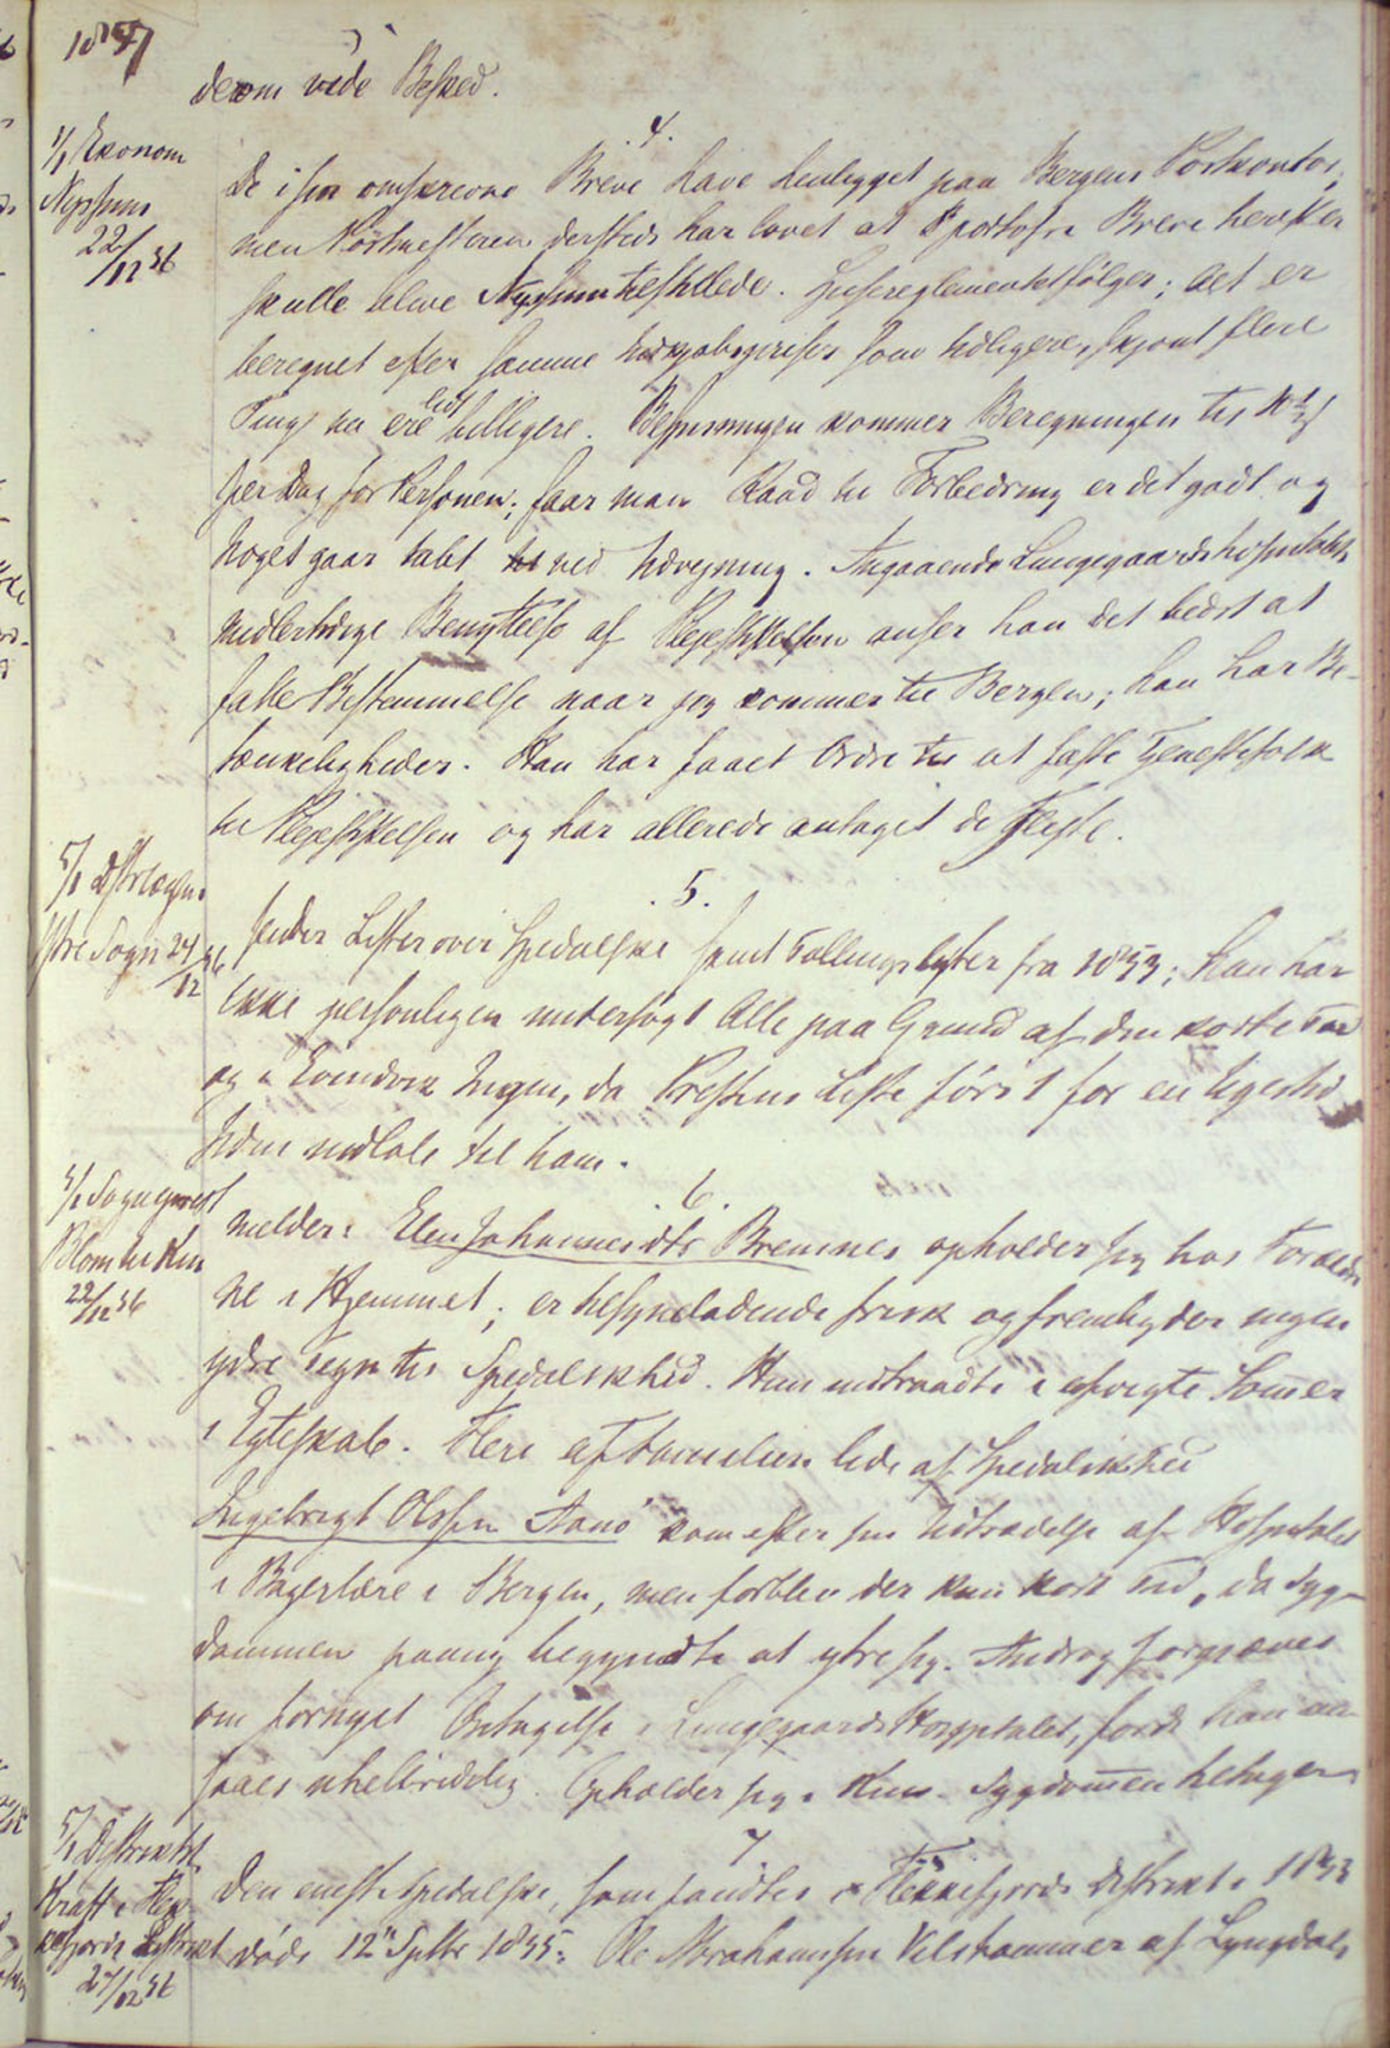 1857
derom vide Besked.
4.
1/1 Økonom
Nyssum
22/12 56
De i sin omskrevne Breve have henligget paa Bergens Postkontor,
men Postmesteren dersteds har lovet at Portofri Breve herefter
skulle blive Nyssum tilstillede. Spisereglementet følger; det er
beregnet efter samme Indkjøbspriser som tidligere, skjønt flere
Ting nu ere lidt billigere. Bespisningen kommer Beregningen til
per Dag for Personen; faar man Raad til Forbedring er det godt og
Noget gaar tabt ved Udvejning. Angaaende Lungegaardshospitalets
midlertidige Benyttelse af Plejestiftelsen anser han det bedst at
fatte Bestemmelse naar jeg kommer til Bergen; han har Be-
tænkeligheder. Han har faaet Ordre til at fæste Tjenestefolk
til Plejestiftelsen og har allerede antaget de Fleste.
5.
5/1 Distrlægen i
Ytre Sogn 24/12 56
Sender Lister over Spedalske samt Tællingslister fra 1853; han har
ikke personligen undersøgt Alle paa Grund af den korte Tid
og i Evindvik Ingen, da Prestens Liste først for en Uges tid
siden indløb til ham.
6.
5/1 Sogneprest
Blom til Kin
22/12 56
melder: Elen Johannesdtr Bremnes opholder sig hos Foræld-
ne i Hjemmet; er tilsyneladende frisk og frembyder ingen
ydre Tegn til Spedalskhed. Hun indtraadte i afvigte Sommer
i Egteskab. Flere af Familien lide af Spedalskhed
Ingebrigt Olssen Aanø kom efter sin Udtrædelse af Hospitalet
i Bagerlære i Bergen, men forblev der kun kort Tid, da Syg-
dommen paany begyndte at ytre sig. Androg forgjæves
om fornyet Optagelse i Lungegaards Hospitalet, fordi han an-
saaes uhelbredelig. Opholder sig i Kinn. Sygdommen tiltager
7
5/1 Distriktsl.
Kraft i Flek-
kefjords Distrikt
27/12 56
Den eneste Spedalske, som fandtes i Flekkefjords Distrikt i 1853
døde 12te Septbr 1855: Ole Abrahamsen Velshammer af Lyngdals